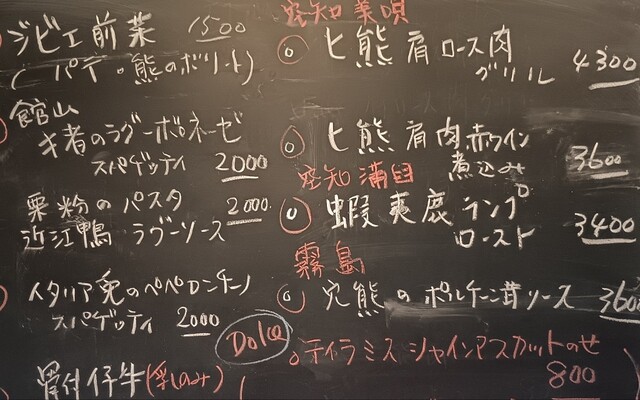 ジビエ前菜 1500
(パテ・熊のボリート)
館山
キ者のラグーボロネーゼ
スパゲッティ 2000
栗粉のパスタ 2000.
近江鴨 ラグーソース
イタリア兎のペペロンチーノ
スパゲッティ 2000
骨付仔牛(乳のみ)
空知美唄
ヒ熊肩ロース肉
グリル 4300
ヒ熊肩肉赤ワイン
煮込み 3600
空知浦臼
蝦夷鹿ランプ
ロースト 3400
霧島
穴熊のポルチーニ茸ソース 3600
Dolce
ティラミスシャインマスカットのせ
800